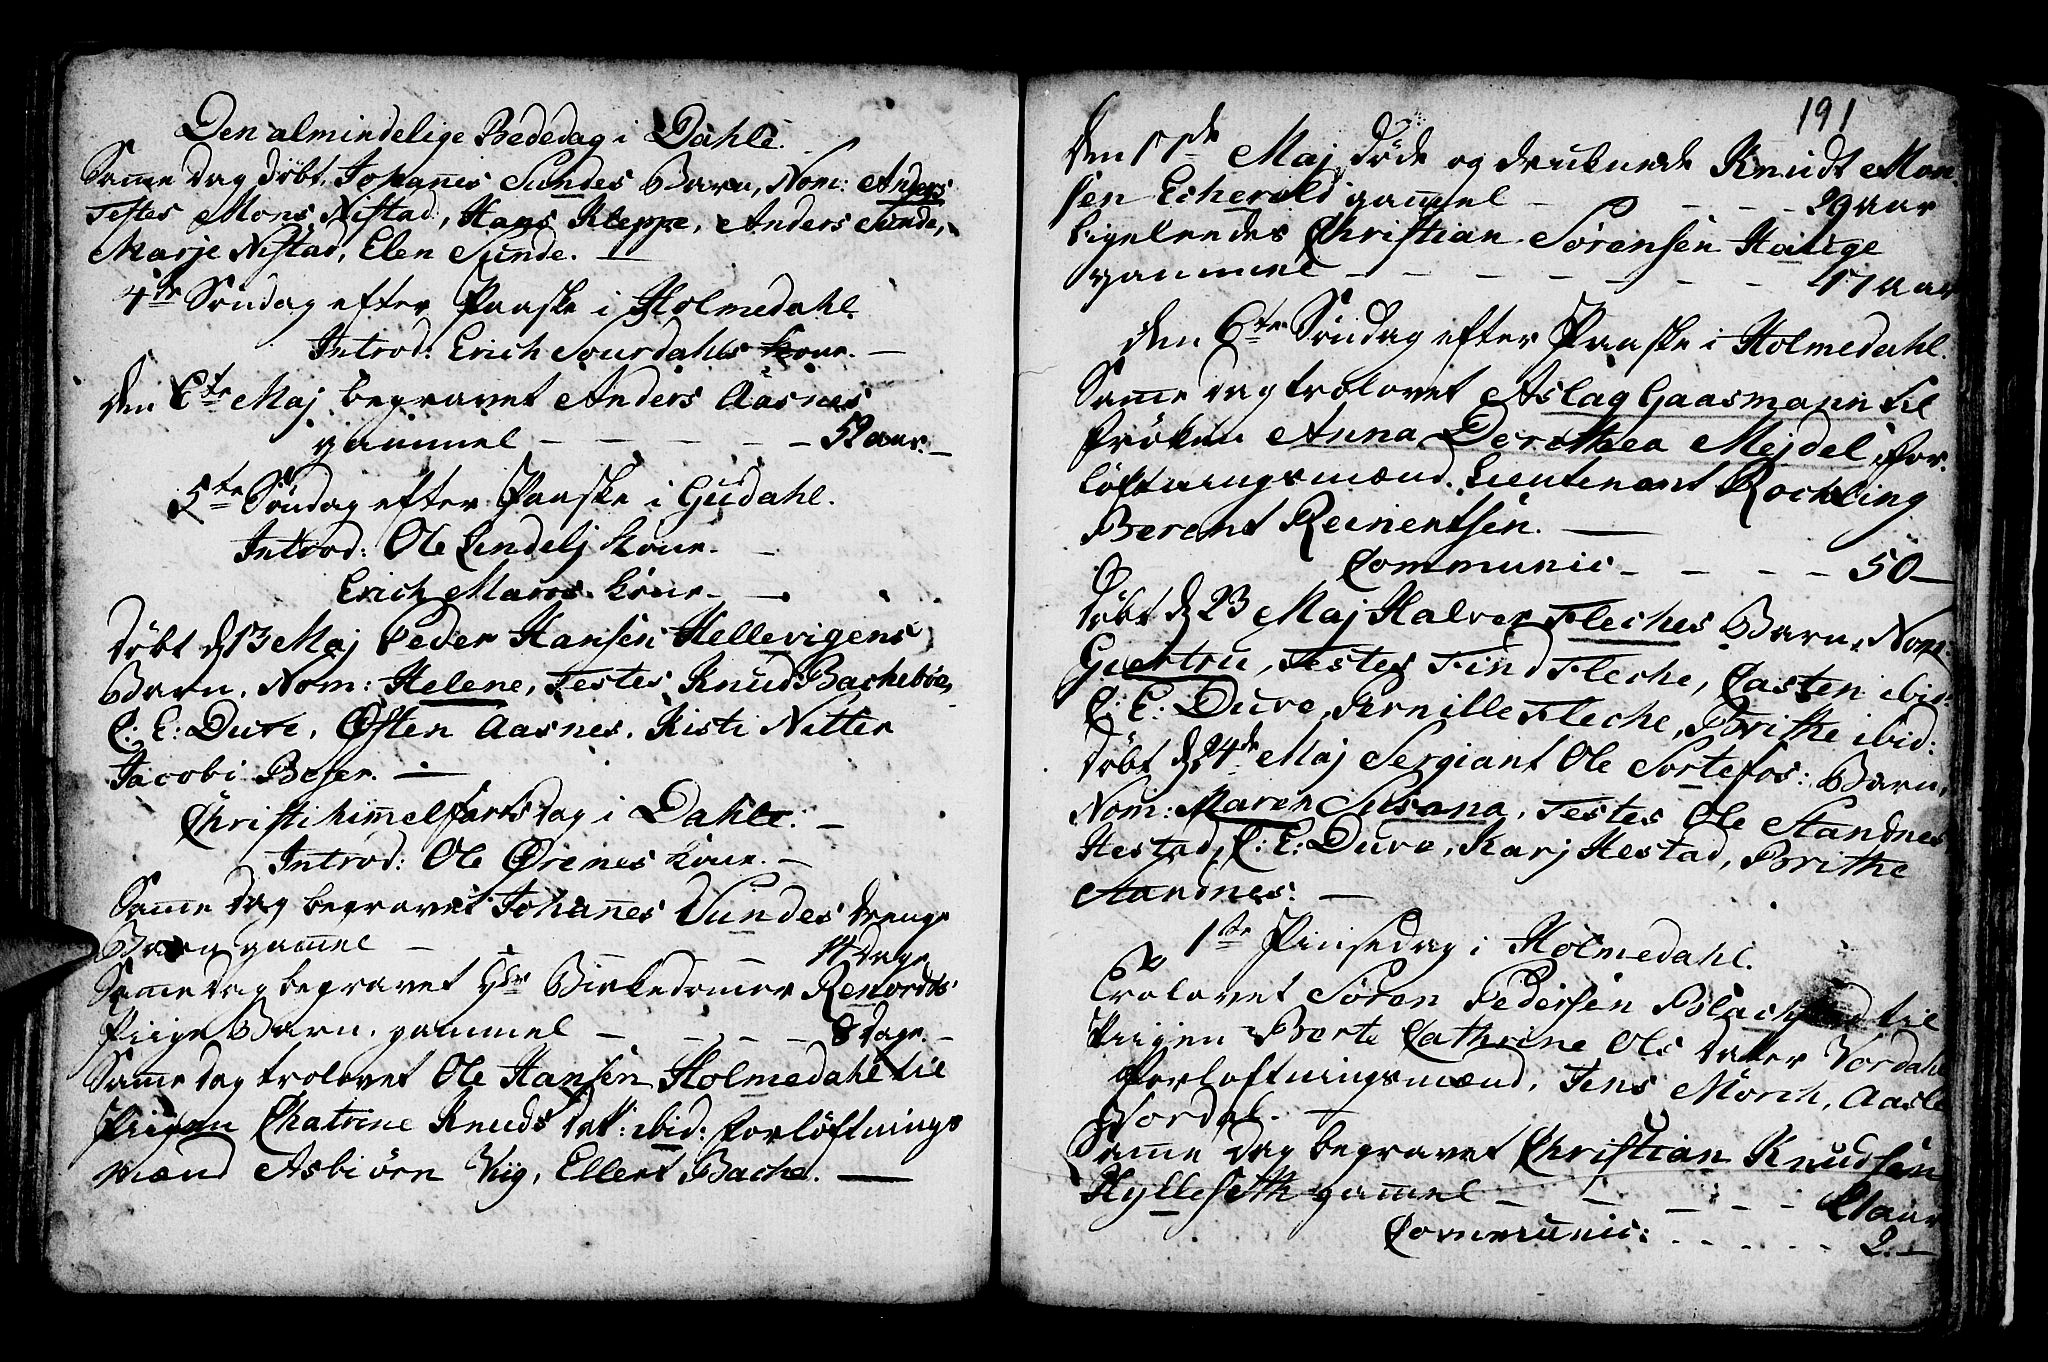 Den almindelige Bededag i Dahle.
Samme dag döbt Johanes Sundes Barn, Nom: Anders
Testes Mons Nistad, Hans Kleppe, Anders Sunde,
Marje Nistad, Elen Sunde.
4de Söndag efter Paaske i Holmedahl.
Introd: Erich Sourdahls kone.
den 6te Maj begravet Anders Aasnes
gammel - - - - - 52 aar.
5te Söndag efter Paaske i Gudahl.
Introd: Ole Lendelj kone.
Erich Maroes kone.
döbt d 13 Maj Peder Hansen Hellevigens
Barn. Nom: Helene, Testes Knud Bacheböe,
C: E: Dure, Østen Aasnes. Kisti Nitter
Jacobi Beser.
Christi himmelfarts dag i Dahle.
Introd: Ole Ørenes kone.
Samme dag begravet Johanes Sundes drenge
Barn gamel - - 14 dage
Samme dag begravet Birkedomer Renords
Piige Barn, gammel - - - - 8 dage.
Samme dag trolovet Ole Hansen Holmedahl til
Piigen Chatrine Knuds dat: ibid: forlöftnings
mænd Asbiörn Viig, Ellert Bache.
191
den 11de Maj döde og druknede Knudt Mon-
sen Echerold gammel - - - - 29 aar
ligeledes Christian Sörensen Hauge
gammel - - - - - - 57 aar
den 6te Söndag efter Paaske i Holmedahl.
Samme dag trolovet Aslag Gaasmann til
fröken Anna Dorothea Mejdel, for-
löftningsmænd. Lieutenant Rochling
Berent Reinentsen.
Communic - - - - 50
döbt d 23 Maj Halvor Fleches Barn, Nom:
Guertru, Testes Find Fleche, Casten ibid:
C: E: Dure, Pernille Fleche, Brithe ibid:
döbt d 24de Maj Sergiant Ole Sortefos: Barn,
Nom: Maren Susana, Testes Ole Standnes
Hestad, C: E: Dure, Karj Hestad, Brithe
Standnes.
1te Pinsedag i Holmedahl.
Trolovet Sören Pedersen til
Piigen Berte Cathrine Ols datter Vordahl
Forloftningsmænd, Jens Mörch, Aasle
Vordal.
Samme dag begravet Christian Knudsen
Hylleseth gamel - - - - - 21 aar
Communic: - - - - - 2.